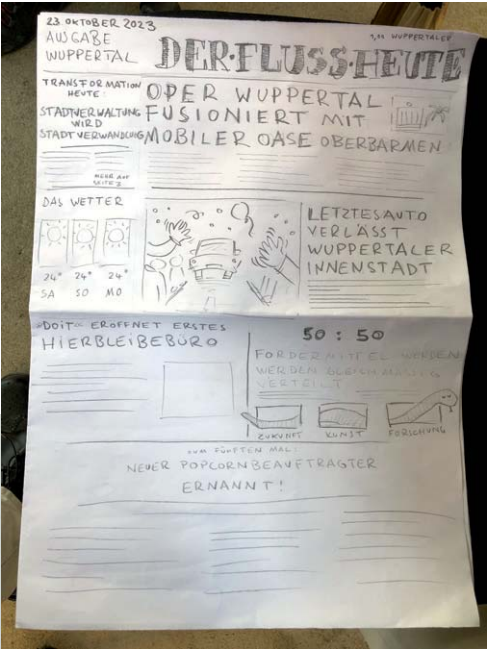 23. OKTOBER 2023
AUSGABE
WUPPERTAL
1,00 WUPPERTALER
DER·FLUSS·HEUTE
TRANSFORMATION
HEUTE:
STADTVERWALTUNG
WIRD
STADTVERWANDLUNG
MEHR AUF
SEITE 3
OPER WUPPERTAL
FUSIONIERT MIT
MOBILER OASE OBERBARMEN
DAS WETTER
24° 24° 24°
SA SO MO
LETZTES AUTO
VERLÄSST
WUPPERTALER
INNENSTADT
"DOIT" ERÖFFNET ERSTES
HIERBLEIBEBÜRO
50 : 50
FÖRDERMITTEL WERDEN
WERDEN GLEICHMÄSSIG
VERTEILT
ZUKUNFT KUNST FORSCHUNG
ZUM FÜNFTEN MAL:
NEUER POPCORNBEAUFTRAGTER
ERNANNT!